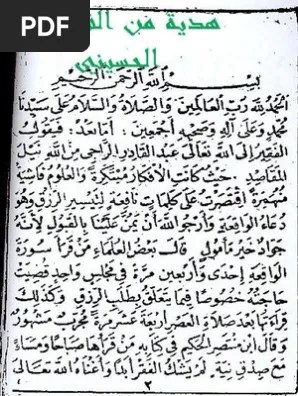 PDF
هدية من
الحسيني
بسم الله الرحمن الرحيم
الحمد لله رب العالمين والصلاة والسلام على سيدنا
محمد وعلى آله وصحبه أجمعين : أما بعد : فيقول
الفقير إلى الله تعالى عبد القادر الراجي من الله نيل
المقاصد حيث كانت الأفكار مبتكرة والعلوم فاشية
منهمرة اقتصرت على كلمات نافعة لتيسير الرزق وهو
دعاء الواقعة وأرجو الله أن يمن علينا بالقبول لأنه
جواد خير مأمول قال بعض العلماء من قرأ سورة
الواقعة إحدى وأربعين مرة في مجلس واحد قضيت
حاجته خصوصا فيما يتعلق بطلب الرزق وكذلك
قراءتها بعد صلاة العصر أربعة عشر مرة مجرب مشهور
وقال ابن الحكيم في كتابه من قرأها صباحا ومساء
مع صدق نية لم يشك الفقر أبدا وأغناه الله تعالى
٢